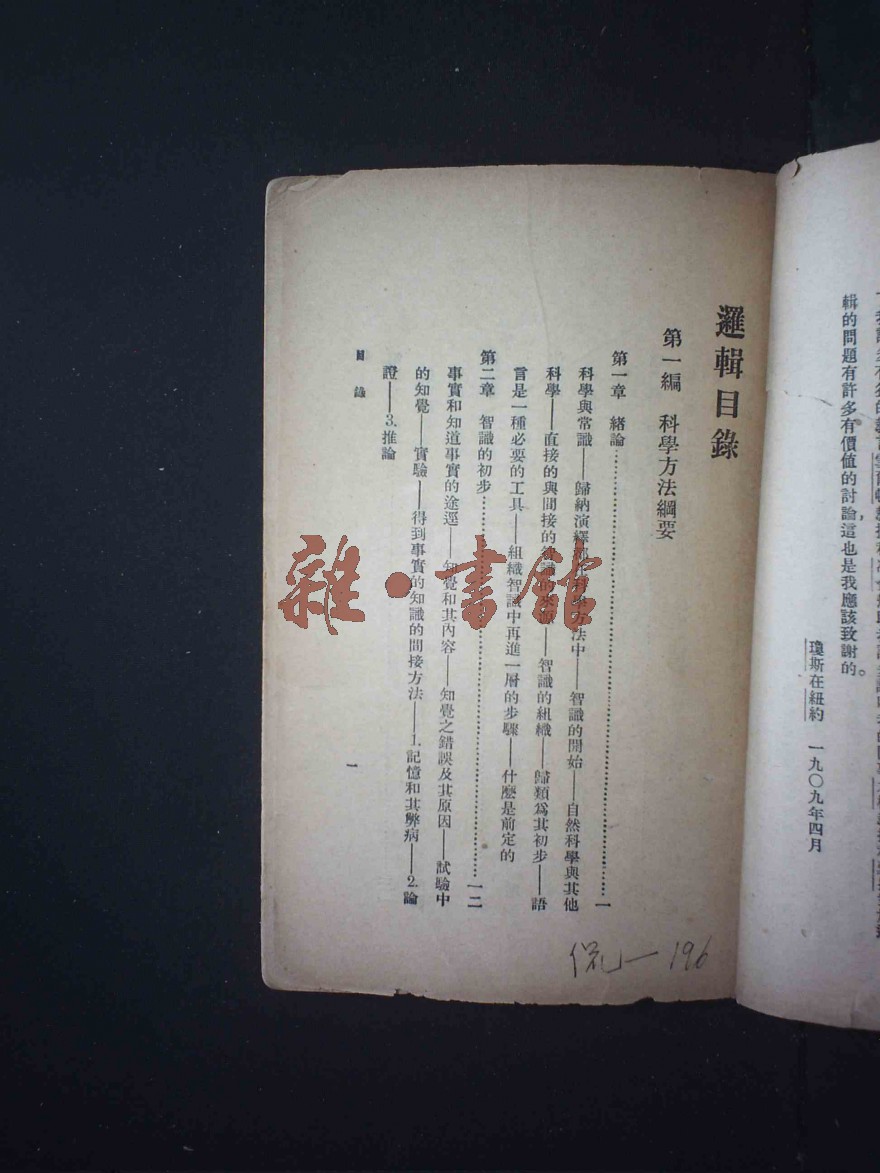 輯的問題有許多有價值的討論,這也是我應該致謝的。
瓊斯在紐約 一九〇九年四月
邏輯目錄
第一編 科學方法綱要
第一章 緒論……一
科學與常識——歸納演繹 科學方法中——智識的開始——自然科學與其他
科學——直接的與間接的智識的來源——智識的組織——歸類爲其初步——語
言是一種必要的工具——組織智識中再進一層的步驟——什麼是前定的
第二章 智識的初步……一二
事實和知道事實的途逕——知覺和其內容——知覺之錯誤及其原因——試驗中
的知覺——實驗——得到事實的知識的間接方法——1.記憶和其弊病——2.論
證——3.推論
目錄
一
雜·書館
196